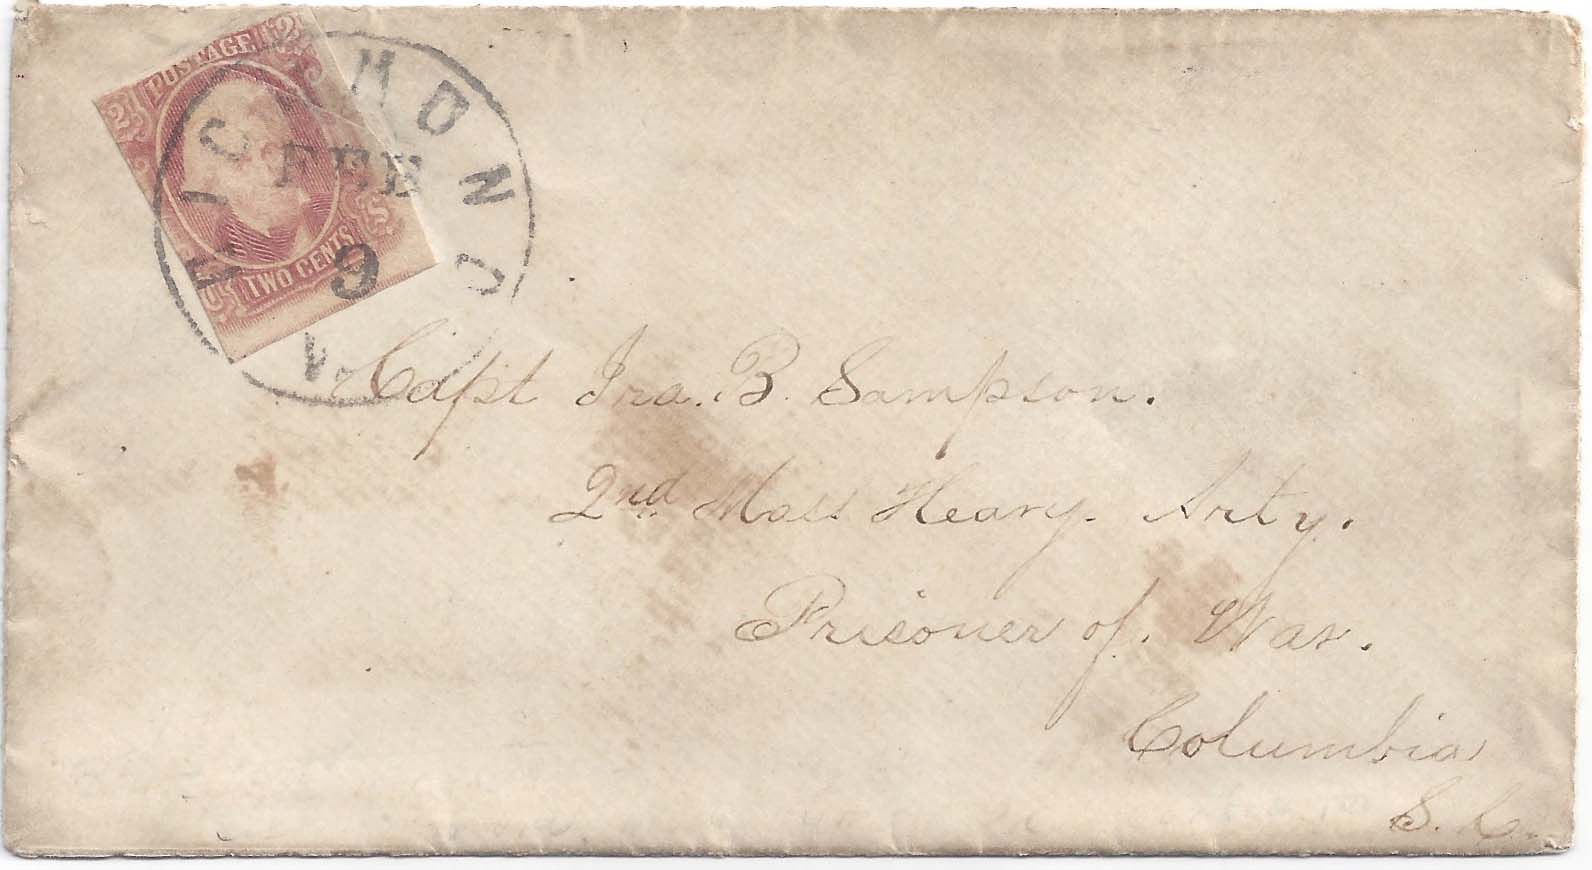 POSTAGE
TWO CENTS
RICHMOND
FEB
9
VA
Capt Ira. B. Sampson.
2nd Mass Heavy. Arty.
Prisoner of. War.
Columbia
S. C.